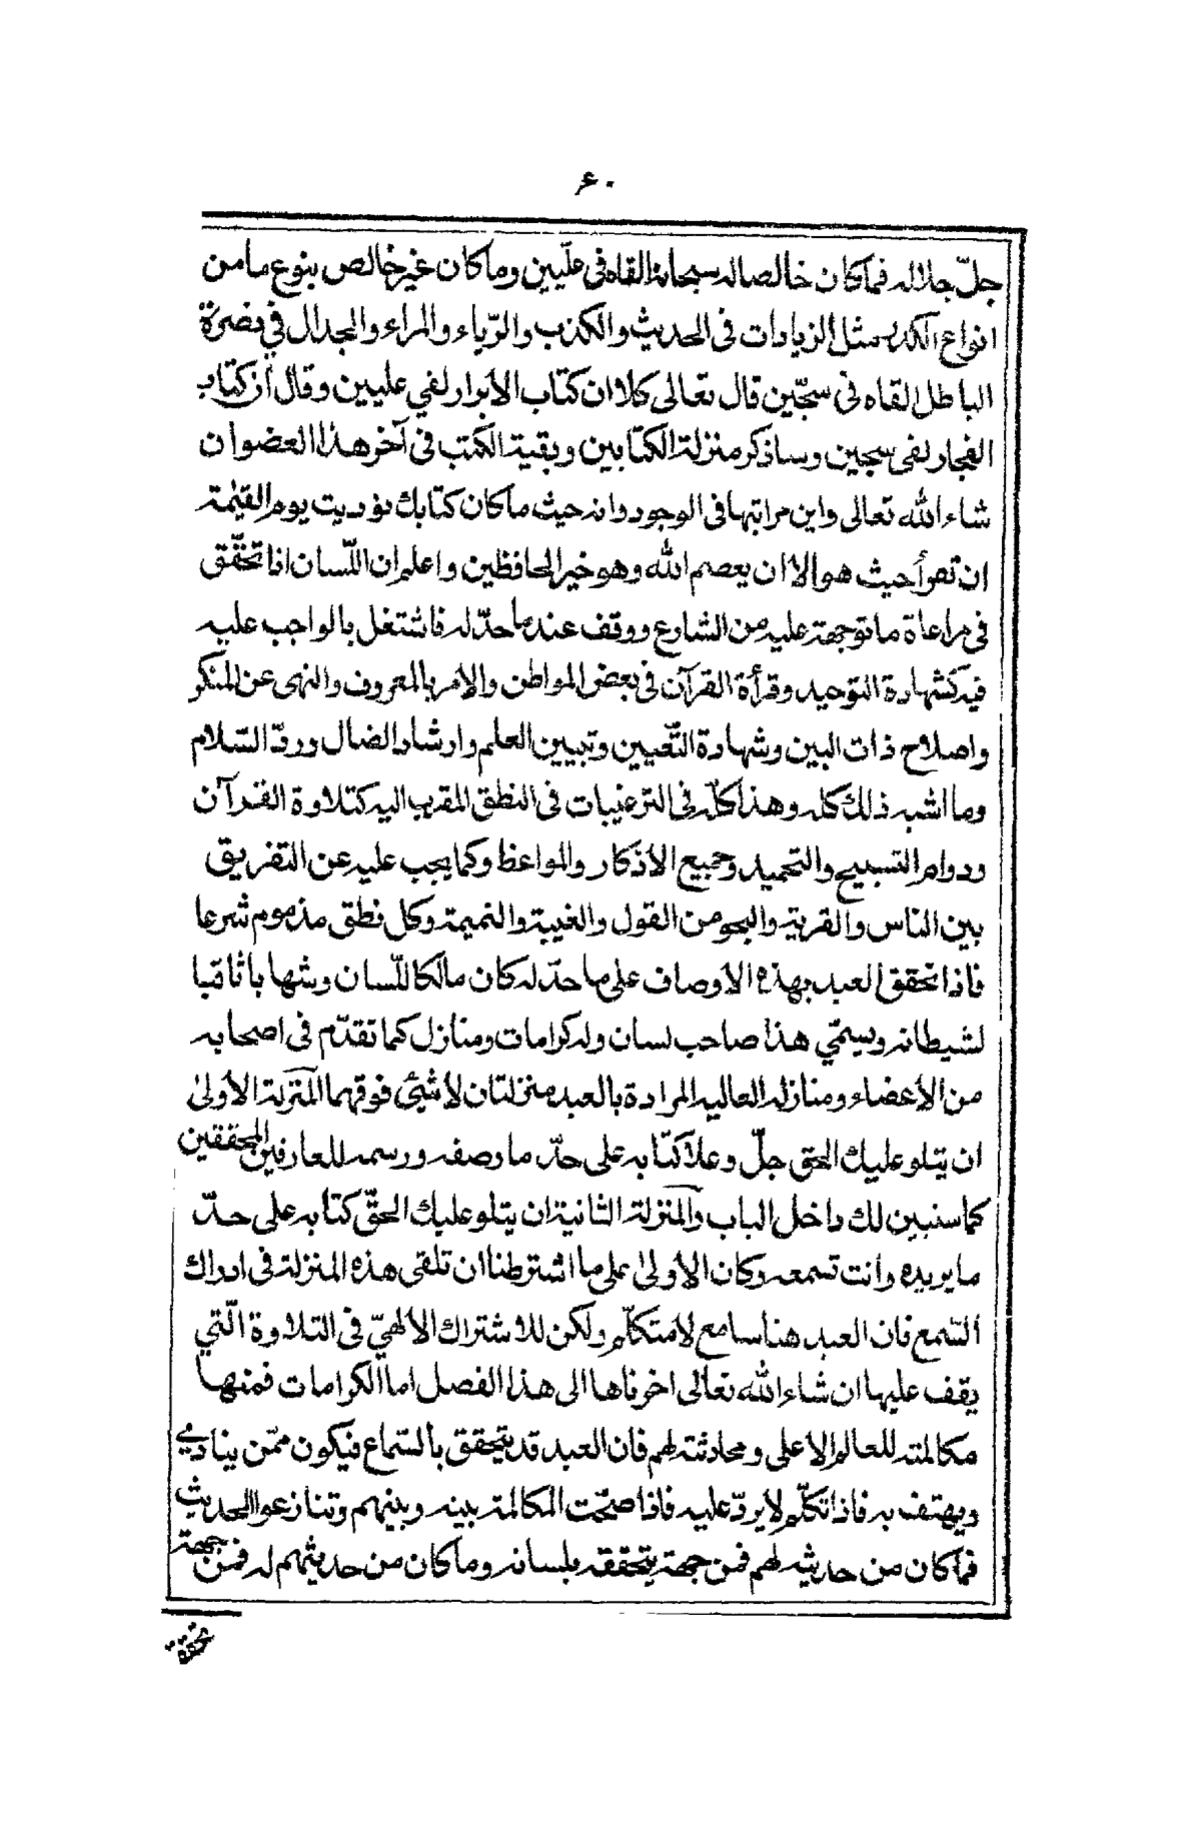 ٦٠
جلّ جلاله فما كان خالصا له سبحانه القاه فى علّيين وما كان غير خالص بنوع ما من
انواع الكدر مثل الزيادات فى الحديث والكذب والرّياء والمراء والجدال في نصرة
الباطل القاه فى سجّين قال تعالى كلا ان كتاب الأبرار لفي عليين وقال ان كتاب
الفجار لفى سجين وساذكر منزلة الكتابين وبقية الكتب فى آخر هذا العضو ان
شاء الله تعالى واين مراتبها فى الوجود وانه حيث ما كان كتابك نوديت يوم القيٰمة
ان تقرأ حيث هو الا ان يعصم الله وهو خير الحافظين واعلم ان اللّسان اذا تحقّق
فى مراعاة ما توجهت عليه من الشارع ووقف عند ما حدّ له فاشتغل بالواجب عليه
فيه كشهادة التوحيد وقرأة القرآن فى بعض المواطن والامر بالمعروف والنهى عن المنكر
واصلاح ذات البين وشهادة التّعيين وتبيين العلم وارشاد الضال وردّ السّلام
وما اشبه ذلك كله وهذا كلّه فى الترغيبات فى النطق المقرب اليه كتلاوة القرآن
ودوام التسبيح والتحميد وجميع الأذكار والمواعظ وكما يجب عليه عن التفريق
بين الناس والفرية والهجو من القول والغيبة والنميمة وكل نطق مذموم شرعا
فاذا تحقق العبد بهذه الاوصاف على ما حدّ له كان مالكا للّسان وشهابا ثاقبا
لشيطانه ويسمّي هذا صاحب لسان وله كرامات ومنازل كما تقدّم فى اصحابه
من الأعضاء ومنازله العاليه المرادة بالعبد منزلتان لا شيئ فوقهما المنزلة الأولىٰ
ان يتلو عليك الحق جلّ وعلا كتابه على حدّ ما وصفه ورسمه للعارفين المحققين
كما سنبين لك داخل الباب والمنزلة الثانية ان يتلو عليك الحقّ كتابه على حدّ
ما يريده وانت تسمعه وكان الأولىٰ على ما اشترطنا ان تلقى هذه المنزلة فى ادراك
السّمع فان العبد هنا سامع لا متكلّم ولكن للاشتراك الالهيّ فى التلاوة الّتي
يقف عليها ان شاء الله تعالى اخرناها الى هذا الفصل اما الكرامات فمنها
مكالمته للعالم الاعلى ومحادثته لهم فان العبد قد يتحقق بالسّماع فيكون ممّن ينادي
ويهتف به فاذا تكلّم لا يردّ عليه فاذا صحّت المكالمة بينه وبينهم وتنازعوا الحديث
فما كان من حديثه لهم فمن جهة يتحققه بلسانه وما كان من حديثهم له فمن جهة
تحققه